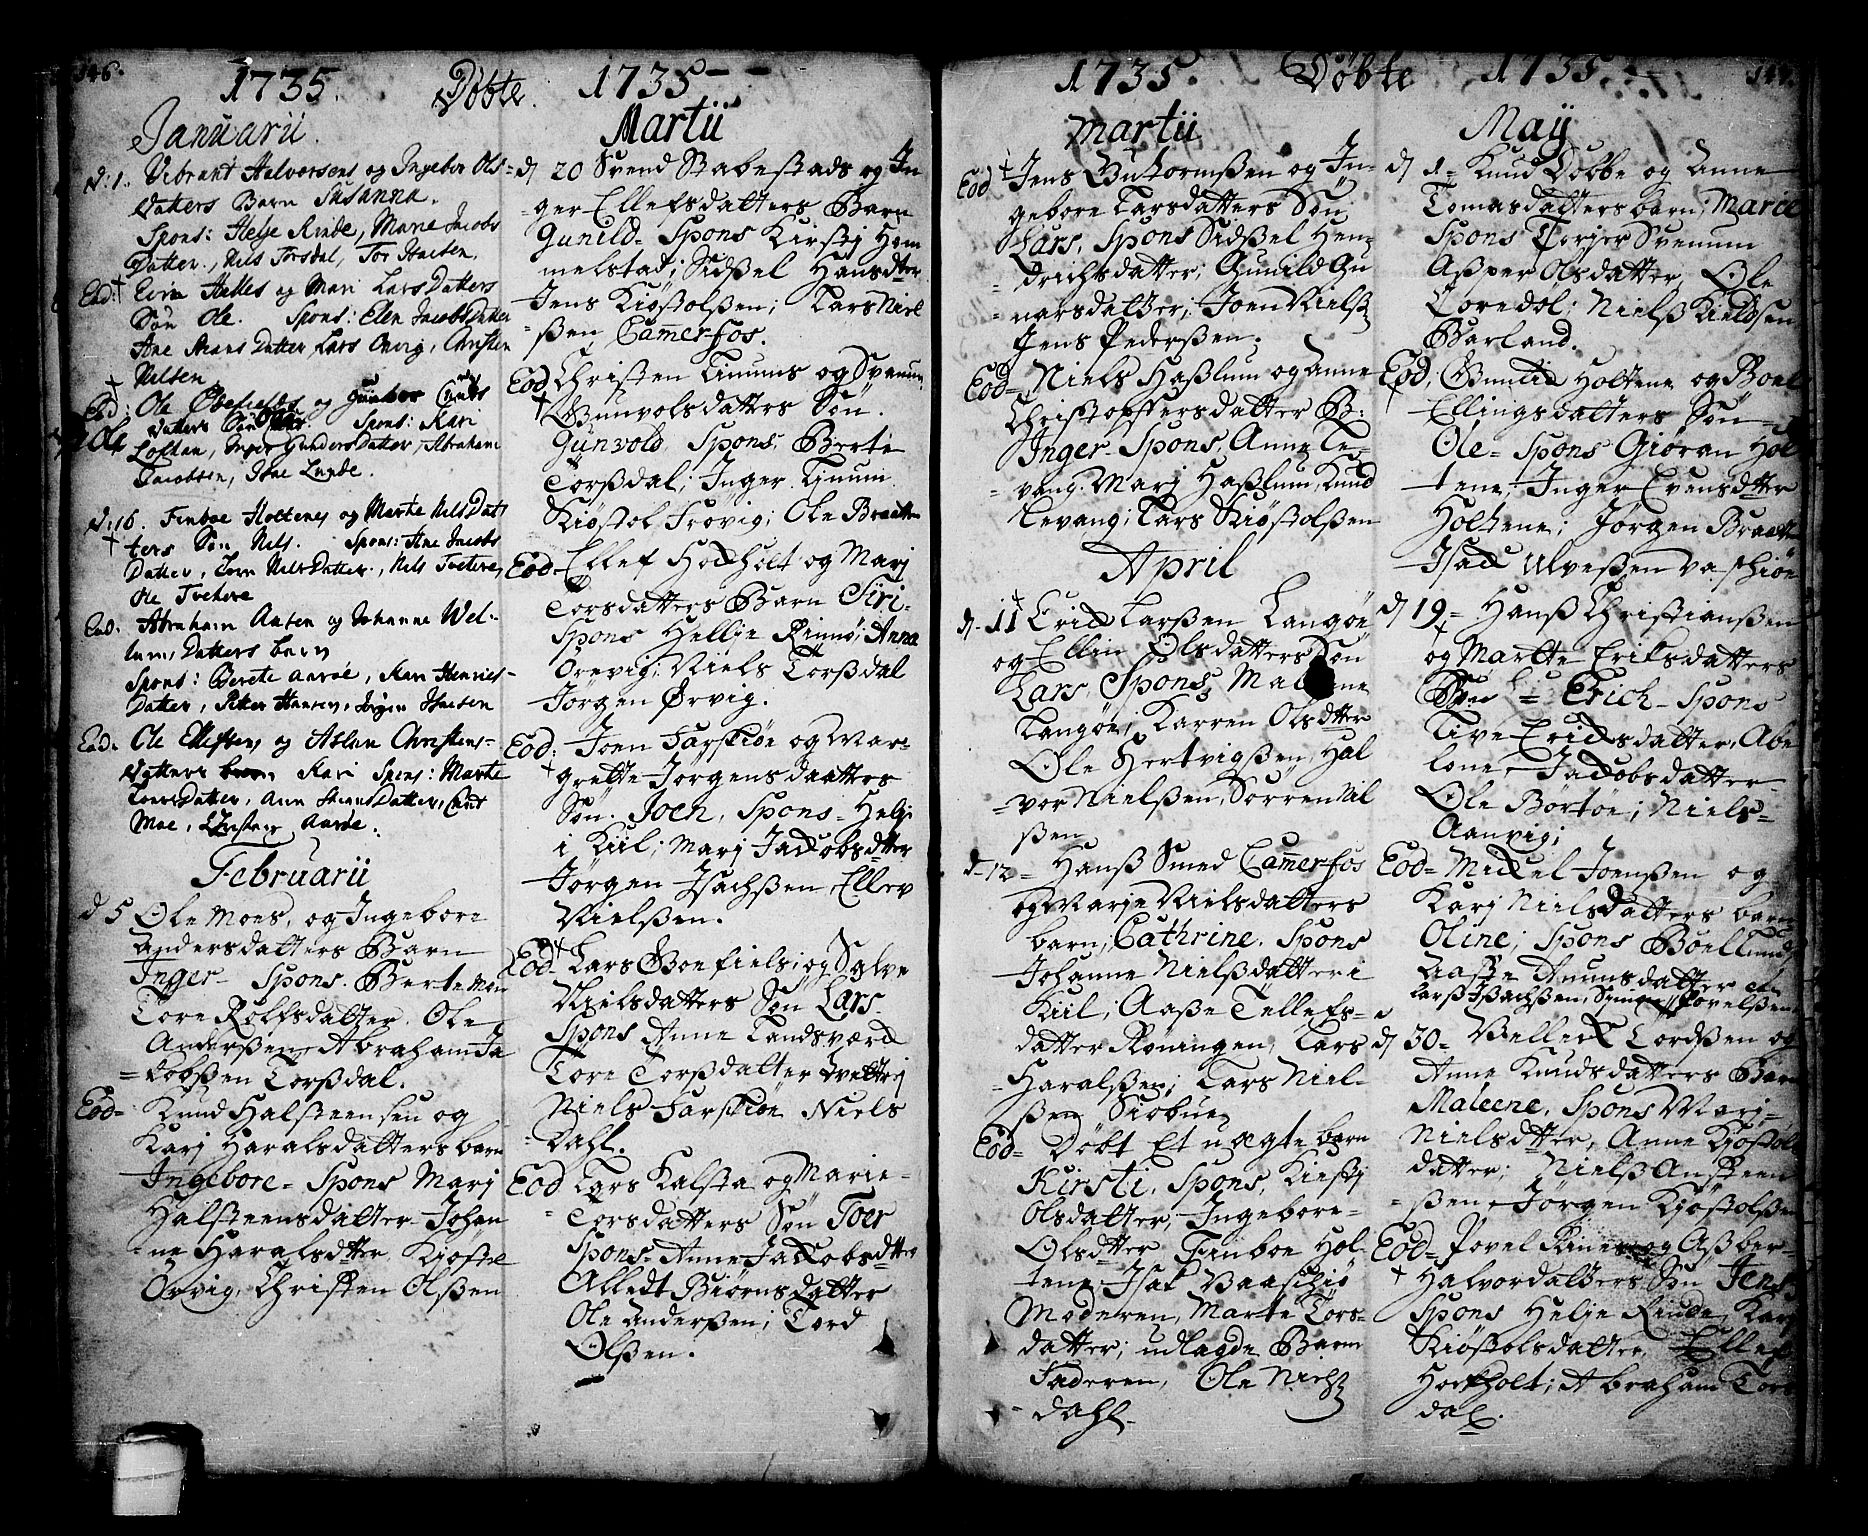 146.
1735. Döbte. 1735
Januarii.
d: 1. Vibrant Halvorsens og Ingebor Ols
Datters Barn Susanna.
Spons: Helje Rinde, Marie Jacobs
Datter, Nils Torsdal, Tor Halsen.
Eod: Even Helles og Mari Lars Datters
Sön Ole. Spons: Elen Jacobs Datter
Ane Datter Lars Orvig, Christen
Nilsen
Eod: Ole og
Datters Sön Spons: Kari
Loftan, Inger Gunders Datter, Abraham
Jacobsen, Isac Lunde.
d: 16. Finboe Holtenes og Marthe Nils Dat
ters Sön Nils. Spons: Ane Jacobs
Datter, Nils Datter, Nils Tvetene,
Ole Tvetene
Eod. Abraham Aasen og Johanne Wel-
lum, Datters barn
Spons: Berete Aaröe, Kari Henrics-
Datter, Peter Hansen, Jörgen Isacsen
Eod. Ole Ellefsen, og Aslau Christens-
Datters barn Kari Spons: Marthe
Tours Datter, Ann Datter, Cnut
Moe, Christen Aaröe.
Februarii
d 5 Ole Moes, og Ingebore
Andersdatters Barn
Inger- Spons. Berte Moe
Tore Rolfsdatter. Ole
Anderßen, Abraham Ja
=kobßen Torßdal.
Eod= Knud Halsteensen og
Karj Haralsdatters barn
Ingebore= Spons Marj
Halsteensdatter Johan
=ne Haralsdtter Kjöstel
Örvig, Christen Olßen
Martii
d 20 Svend Stabestads og In
=ger Ellefsdatters Barn
Gunild= Spons Kirstj Hom
melstad; Sidßel Hansdtter
Jens Kiöstolßen; Lars Niel
=ßen, Camerfos.
Eod Christen Tinums og
Gunvolsdatters Sön.
Gunvold, Spons, Berte
Torßdal; Inger Tinum
Kiöstol Frovig; Ole Braatten
Eod= Ellef Hockholt og Marj
Torsdatters Barn Siri-
Spons Hellje Rinnö; Anna
Örevig; Niels Torßdal
Jörgen Örvig.
Eod: Joen Farskiön og Mar=
grette Jörgensdaatters
Sön. Joen, Spons= Helje
i Kiil; Marj Jackobsdtter
Jörgen Isachßen, Ellev
Nielßen.
Eod= Lars Boefiels; og Sylve
Nielsdatters Sön Lars-
Spons Anne Landsværck
Tore Torßdatter
Niels Farskiön Niels
=Dahl.
Eod Lars Kalsta og Marie-
Torsdatters Sön Toer
Spons= Anne Jackobsdtter
Alledt Biörnsdatter
Ole Anderßen; Tord
Olßen.
1735. Döbte 1735. 147.
Martii
Eod Jens Guttormßen og In-
gebore Larsdatters Sön
Lars, Spons Sidßel Hen=
=drichsdatter; Gunild Gu
=narsdatter; Joen Nielß
Jens Pederßen.
Eod= Niels Haßlum og Anne
Christoffersdatter B:
Inger= Spons, Anne Le-
=vang. Marj Haßlum, Knud
Levang; Lars Kiöstolßen
April
d. 11 Erick Larßen Langöe
og Ellin Olsdatters Sön
Lars, Spons, Ma ne
Langöe; Karren Olsdtter
Ole Hertvigßen, Hal
=vor Nielßen, Sörren Nil
ßen
d=12= Hanß Smed Camerfos
og Marje Nielsdatters
barn; Cathrine. Spons
Johanne Nielßdatter i
Kiil; Aaße Tellefs-
datter Röningen, Lars
=Haralßen; Lars Niel-
ßen Siöbue,
Eod= Döbt Et uægte barn
Kirsti, Spons, Kirstj
Olsdatter, Ingebore-
Olsdtter Finboe Hol
tene Isak Vaaschiö
Moderen, Marte Tors-
datter; udlagde Barn
Faderen, Ole Niels
=dahl.
May
d 1= Knud Dobbe og Anne
Tomasdatters barn; Marie
Spons Torjer Svenum
Aßper Olsdatter, Ole
Toredol; Nielß Kieldsen
Barland.
Eod; Holtene og Boel
Ellingsdatters Sön
Ole= Spons Giöran Hol
tene; Inger Evensdtter
Holtene; Jörgen Braatt
Isack Ulveßen Vaschiön
d 19= Hanß Christianßen
og Martte Eriksdatters
Sön = Erich= Spons
Live Ericksdatter, Abe
lone Jackobsdatter-
Ole Börtöe; Niels-
Aanvig;
Eod= Mickel Joenßen og
Karj Nielsdatters barn
Oline; Spons Böel Lund,
Aaste Amunsdatter
Larß Isachßen, Povelßen
d 30= Velleck Tordßen og
Anne Knudsdatters Barn
Maleene. Spons Marj=
Nielsdtter, Anne Kjöstols
datter; Nielß Ansteen
=ßen, Jörgen Kjöstolßen
Eod= Povel og Aßber=
Halvordatters Sön Jens
Spons Helje Rinde, Karj
Kiöstolsdatter, Ellef
Hockholt; Abraham Tors
dal.